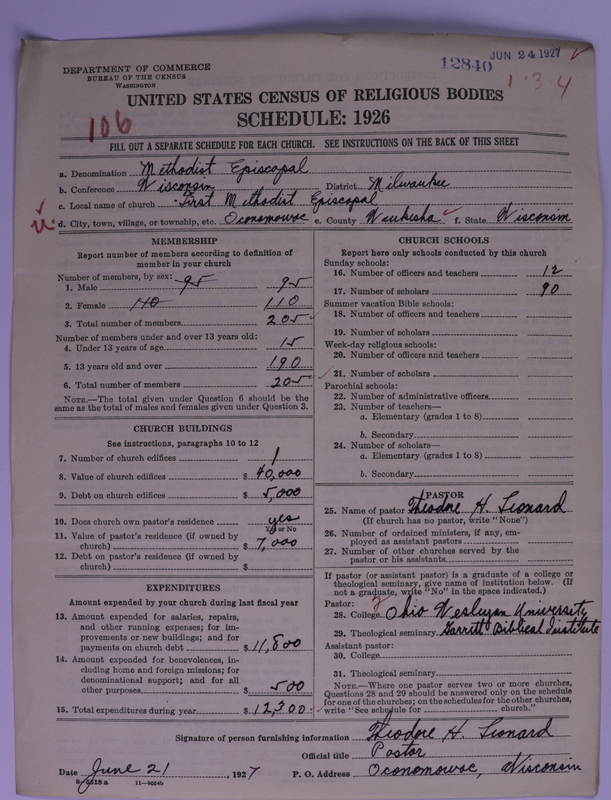 DEPARTMENT OF COMMERCE
BUREAU OF THE CENSUS
WASHINGTON
12840
JUN 24 1927
1 3 4
106
UNITED STATES CENSUS OF RELIGIOUS BODIES
SCHEDULE: 1926
FILL OUT A SEPARATE SCHEDULE FOR EACH CHURCH. SEE INSTRUCTIONS ON THE BACK OF THIS SHEET
a. Denomination Methodist Episcopal
b. Conference Wisconsin District Milwaukee
c. Local name of church First Methodist Episcopal
d. City, town, village, or township, etc. Oconomowoc e. County Waukesha f. State Wisconsin
MEMBERSHIP
Report number of members according to definition of
member in your church
Number of members, by sex:
1. Male 95 95
2. Female 110 110
3. Total number of members 205
Number of members under and over 13 years old:
4. Under 13 years of age 15
5. 13 years old and over 190
6. Total number of members 205
NOTE.—The total given under Question 6 should be
same as the total of males and females given under Question 3.
CHURCH BUILDINGS
See instructions, paragraphs 10 to 12
7. Number of church edifices 1
8. Value of church edifices $ 40,000
9. Debt on church edifices $ 5,000
10. Does church own pastor's residence yes
Yes or No
11. Value of pastor's residence (if owned by
church) $ 7,000
12. Debt on pastor's residence (if owned by
church) $
EXPENDITURES
Amount expended by your church during last fiscal year
13. Amount expended for salaries, repairs,
and other running expenses; for im-
provements or new buildings; and for
payments on church debt $ 11,800
14. Amount expended for benevolences, in-
cluding home and foreign missions; for
denominational support; and for all
other purposes $ 500
15. Total expenditures during year $ 12,300
CHURCH SCHOOLS
Report here only schools conducted by this church
Sunday schools:
16. Number of officers and teachers 12
17. Number of scholars 90
Summer vacation Bible schools:
18. Number of officers and teachers
19. Number of scholars
Week-day religious schools:
20. Number of officers and teachers
21. Number of scholars
Parochial schools:
22. Number of administrative officers
23. Number of teachers—
a. Elementary (grades 1 to 8)
b. Secondary
24. Number of scholars—
a. Elementary (grades 1 to 8)
b. Secondary
PASTOR
25. Name of pastor Theodore H. Leonard
(If church has no pastor, write "None")
26. Number of ordained ministers, if any, em-
ployed as assistant pastors
27. Number of other churches served by the
pastor or his assistants
If pastor (or assistant pastor) is a graduate of a college or
theological seminary, give name of institution below. (If
not a graduate, write "No" in the space indicated.)
Pastor:
28. College Ohio Wesleyan University
29. Theological seminary Garrett Biblical Institute
Assistant pastor:
30. College
31. Theological seminary
NOTE.—Where one pastor serves two or more churches,
Questions 28 and 29 should be answered only on the schedule
for one of the churches; on the schedules for the other churches,
write "See schedule for church."
Signature of person furnishing information Theodore H. Leonard
Official title Pastor
Date June 21, 1927 P. O. Address Oconomowoc, Wisconsin
8-5518a 11-9024b